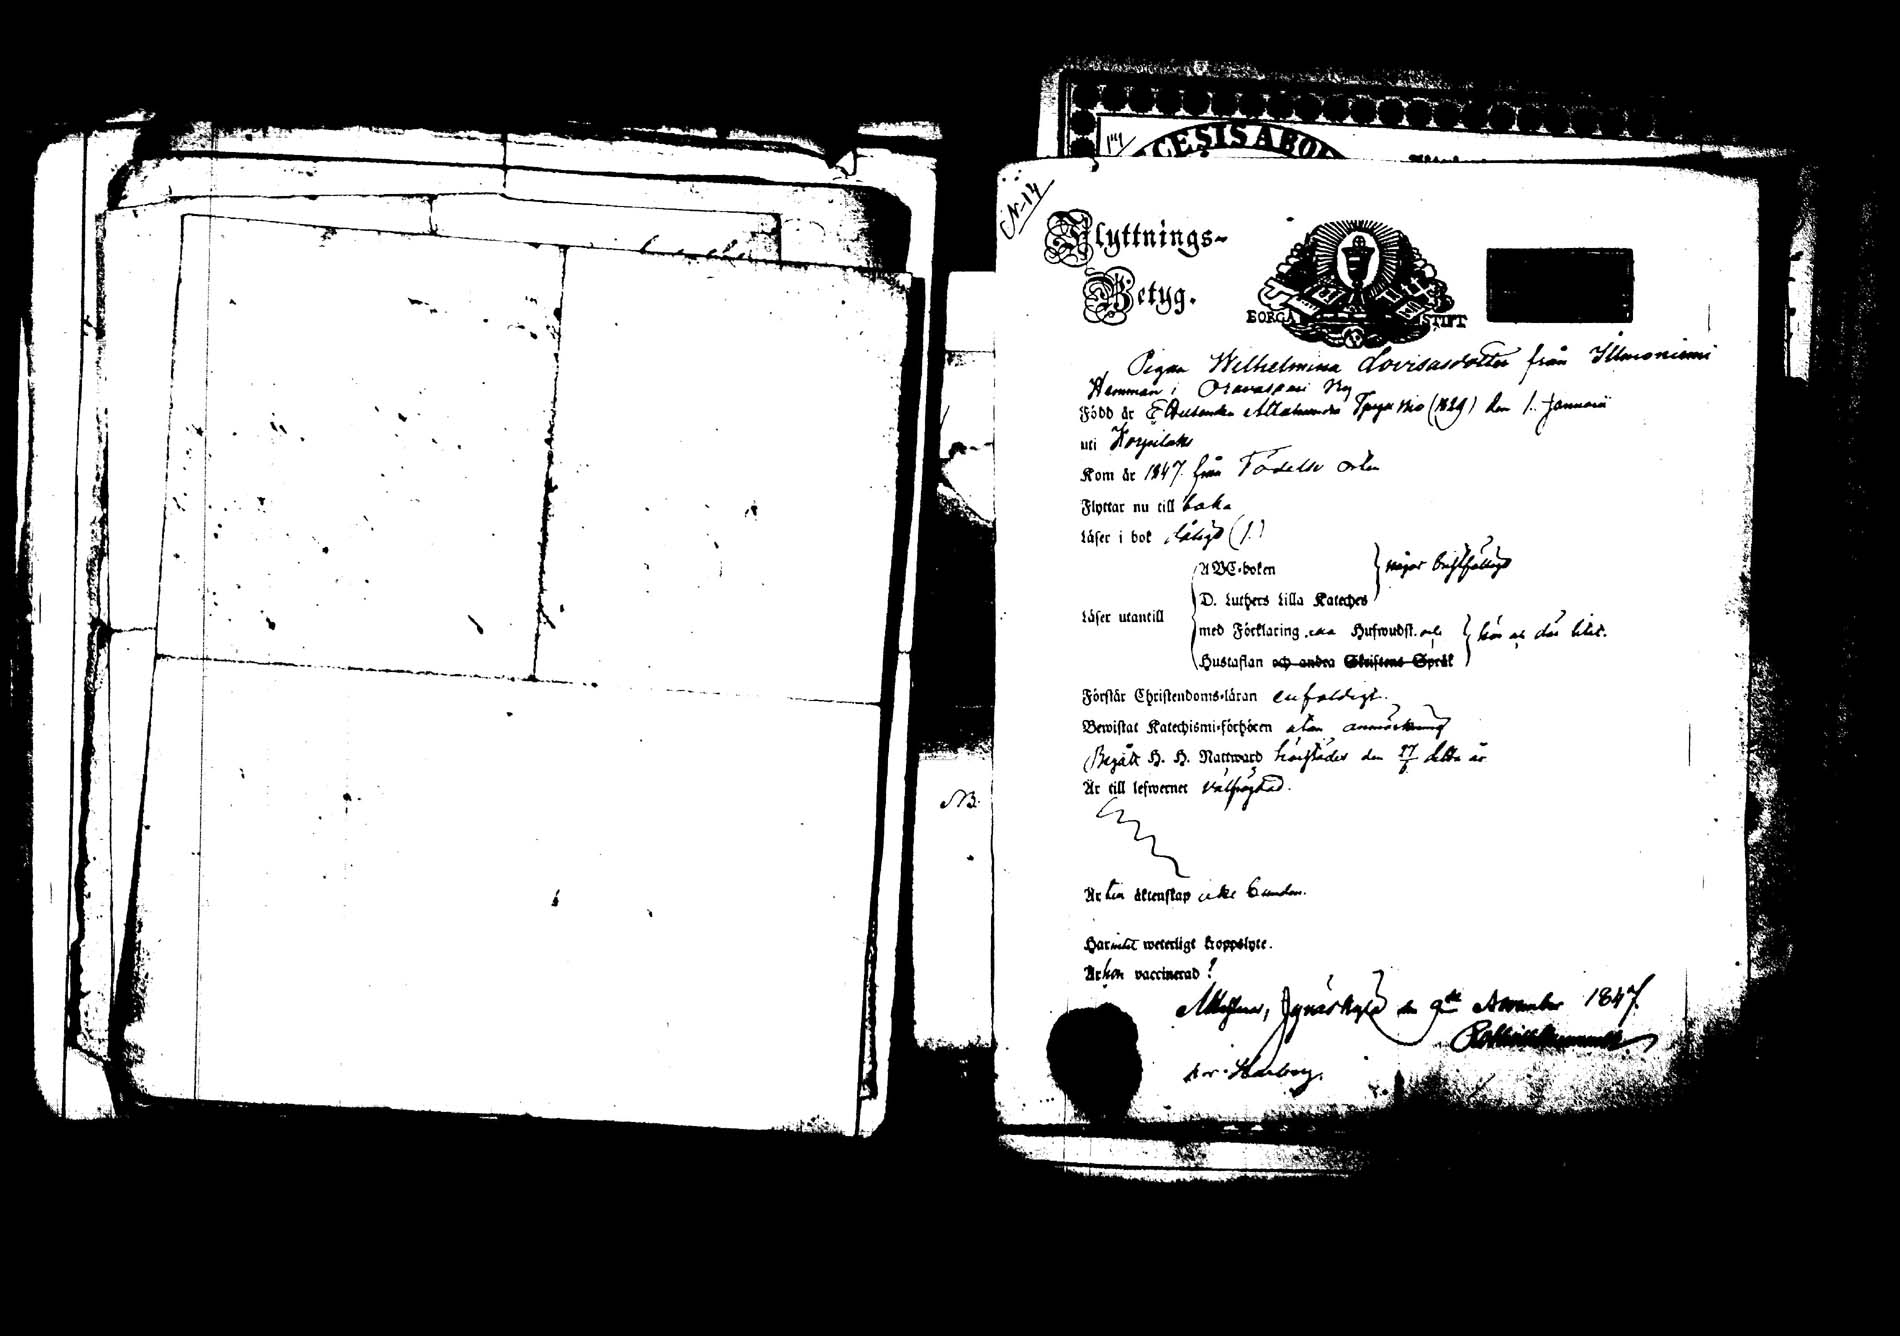 CESIS ABO
N. 14
Flyttnings-
Betyg.
BORGÅ STIFT
Pigan Wilhelmina Lovisasdotter från Ilmoniemi
Hemman i Oravaspari By
Född år Adertonhundra Tjugu Nio (1829) den 1. Januarii
uti Korpilaks
Kom år 1847. från Födelse orten
Flyttar nu till baka
Läser i bok dåligt (1.)
ABC-boken
D. Luthers Lilla Kateches
något bristfälligt
Läser utantill
med Förklaring, Hufwudst. och
Hustaflan och andra Skriftens Språk
Förstår Christendoms-läran enfaldigt.
Bewistat Katechismi-förhören utan anmärkning
Begått H. H. Nattward härstädes den 27/6 detta år
Är till lefwernet välfrägdad.
NB.
Är hon äktenskap icke bunden.
Har intet weterligt kroppslyte.
Är hon vaccinerad?
den 9de November 1847.